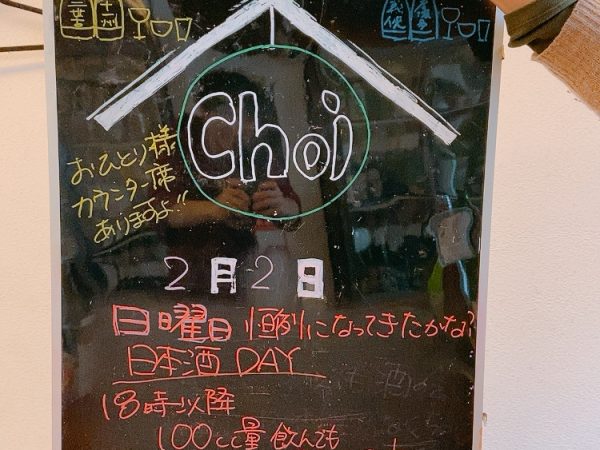 十二州
Choi
おひとり様
カウンター席
ありますよ!!
2月2日
日曜日 恒例になってきたかな?
日本酒 DAY
18時以降
100cc量 飲んでも